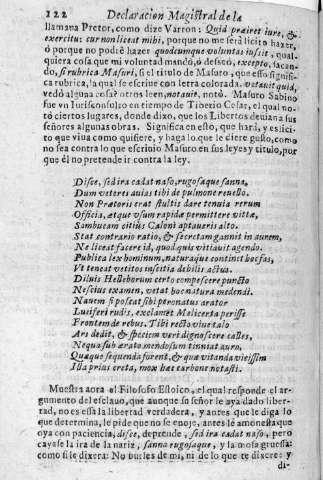 122 Declaracion Magistral de la
llamana Pretor, como dize Varron: Quid prairet iure, &
exercitus: cur non liceat mihi, porque no me será licito hazer,
ó porque no podrè hazer quodcumque voluntas iussit, qual-
quiera cosa que mi voluntad mandó, ó desseó, excepto, sacan-
do, si rubrica Masuri, si el titulo de Masuro, que esso signifi-
ca rubrica, la qual se escriue con letra colorada, vetauit quid,
vedó alguna cosa: otros leen, notauit, notó. Masuro Sabino
fue vn Iurisconsulto en tiempo de Tiberio Cesar, el qual no-
tó ciertos lugares, donde dixo, que los Libertos deuian a sus
señores algunas obras. Significa en esto, que hará, y es lici-
to que viua como quisiere, y haga lo que le diere gusto, como
no sea contra lo que escriuio Masuro en sus leyes y titulo, por
que él no pretende ir contra la ley.
Disce, sed ira cadat naso, rugosaque sanna,
Dum veteres auias tibi de pulmone reuello.
Non Prætoris erat stultis dare tenuia rerum
Officia, atque vsum rapidæ permittere vittæ,
Sambucam citiùs Caloni aptaueris alto.
Stat contrario ratio, & secretam gannit in aurem,
Ne liceat facere id, quod quis vittiauit agendo.
Publica lex hominum, naturaque continet hoc fas,
Vt teneat vetitos inscitia debilis actus.
Diluis Helleborum certo compescere puncto
Nescius examen, vetat hoc natura medendi.
Nauem si poscat sibi peronatus arator
Luciferi rudis, exclamet Melicerta perisse
Frontem de rebus. Tibi recto viuere talo
Ars dedit, & speciem veri dignoscere calles,
Nequa subærato mendosum tinniat auro.
Quæque sequenda forent, & quæ vitanda vicissim
Illa prius creta, mox hæc carbone notasti.
Muestra aora el Filosofo Estoico, el qual responde el ar-
gumento del esclauo, que aunque su señor le aya dado liber-
tad, no es essa la libertad verdadera, y antes que le diga lo
que determina, le pide que no se enoje, antes le amonesta que
oya con paciencia, disce, deprende, sed ira cadat naso, pero
cayase la ira de la nariz, sanna rugosaque, y la mofa gruessa:
como si le dixera: No burles de mi, ni de lo que te dixere: y
di-